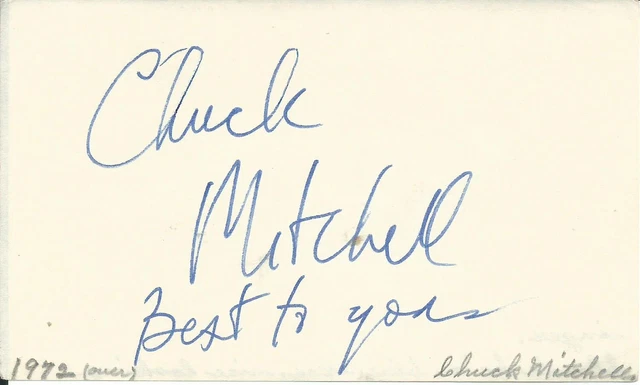 Chuck
Mitchell
Best to you
1972 (over) Chuck Mitchell